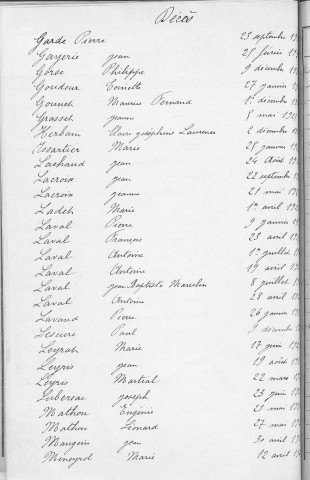 Décès
Garde Pierre 23 septembre 19
Gayerie Jean 25 février 19
Gorse Philippe 9 décembre 19
Goudour Toinette 27 janvier 19
Goumet Maurice Fernand 1er décembre 19
Grasset Jeanne 5 mai 192
Herbain Marie Joséphine Laurence 2 décembre 19
Issartier Marie 25 janvier 19
Lachaud Jean 24 Août 19
Lacroix Jean 22 septembre 19
Lacroix Jeanne 21 mai 19
Ladet Marie 1er avril 19
Laval Pierre 9 janvier 19
Laval François 23 avril 19
Laval Antoine 1er juillet 19
Laval Antoine 19 avril 19
Laval Jean Baptiste Marcelin 8 juillet 19
Laval Antoine 28 avril 19
Lavaud Pierre 26 janvier 19
Lescure Paul 9 décembre 19
Leyrat Marie 17 juin 192
Leyris Jean 19 août 19
Leyris Martial 22 mars 19
Lubersac Joseph 23 juin 19
Mathou Eugénie 21 mai 19
Mathou Léonard 27 mai 19
Mangein Jean 30 avril 19
Meneyrol Marie 12 avril 19